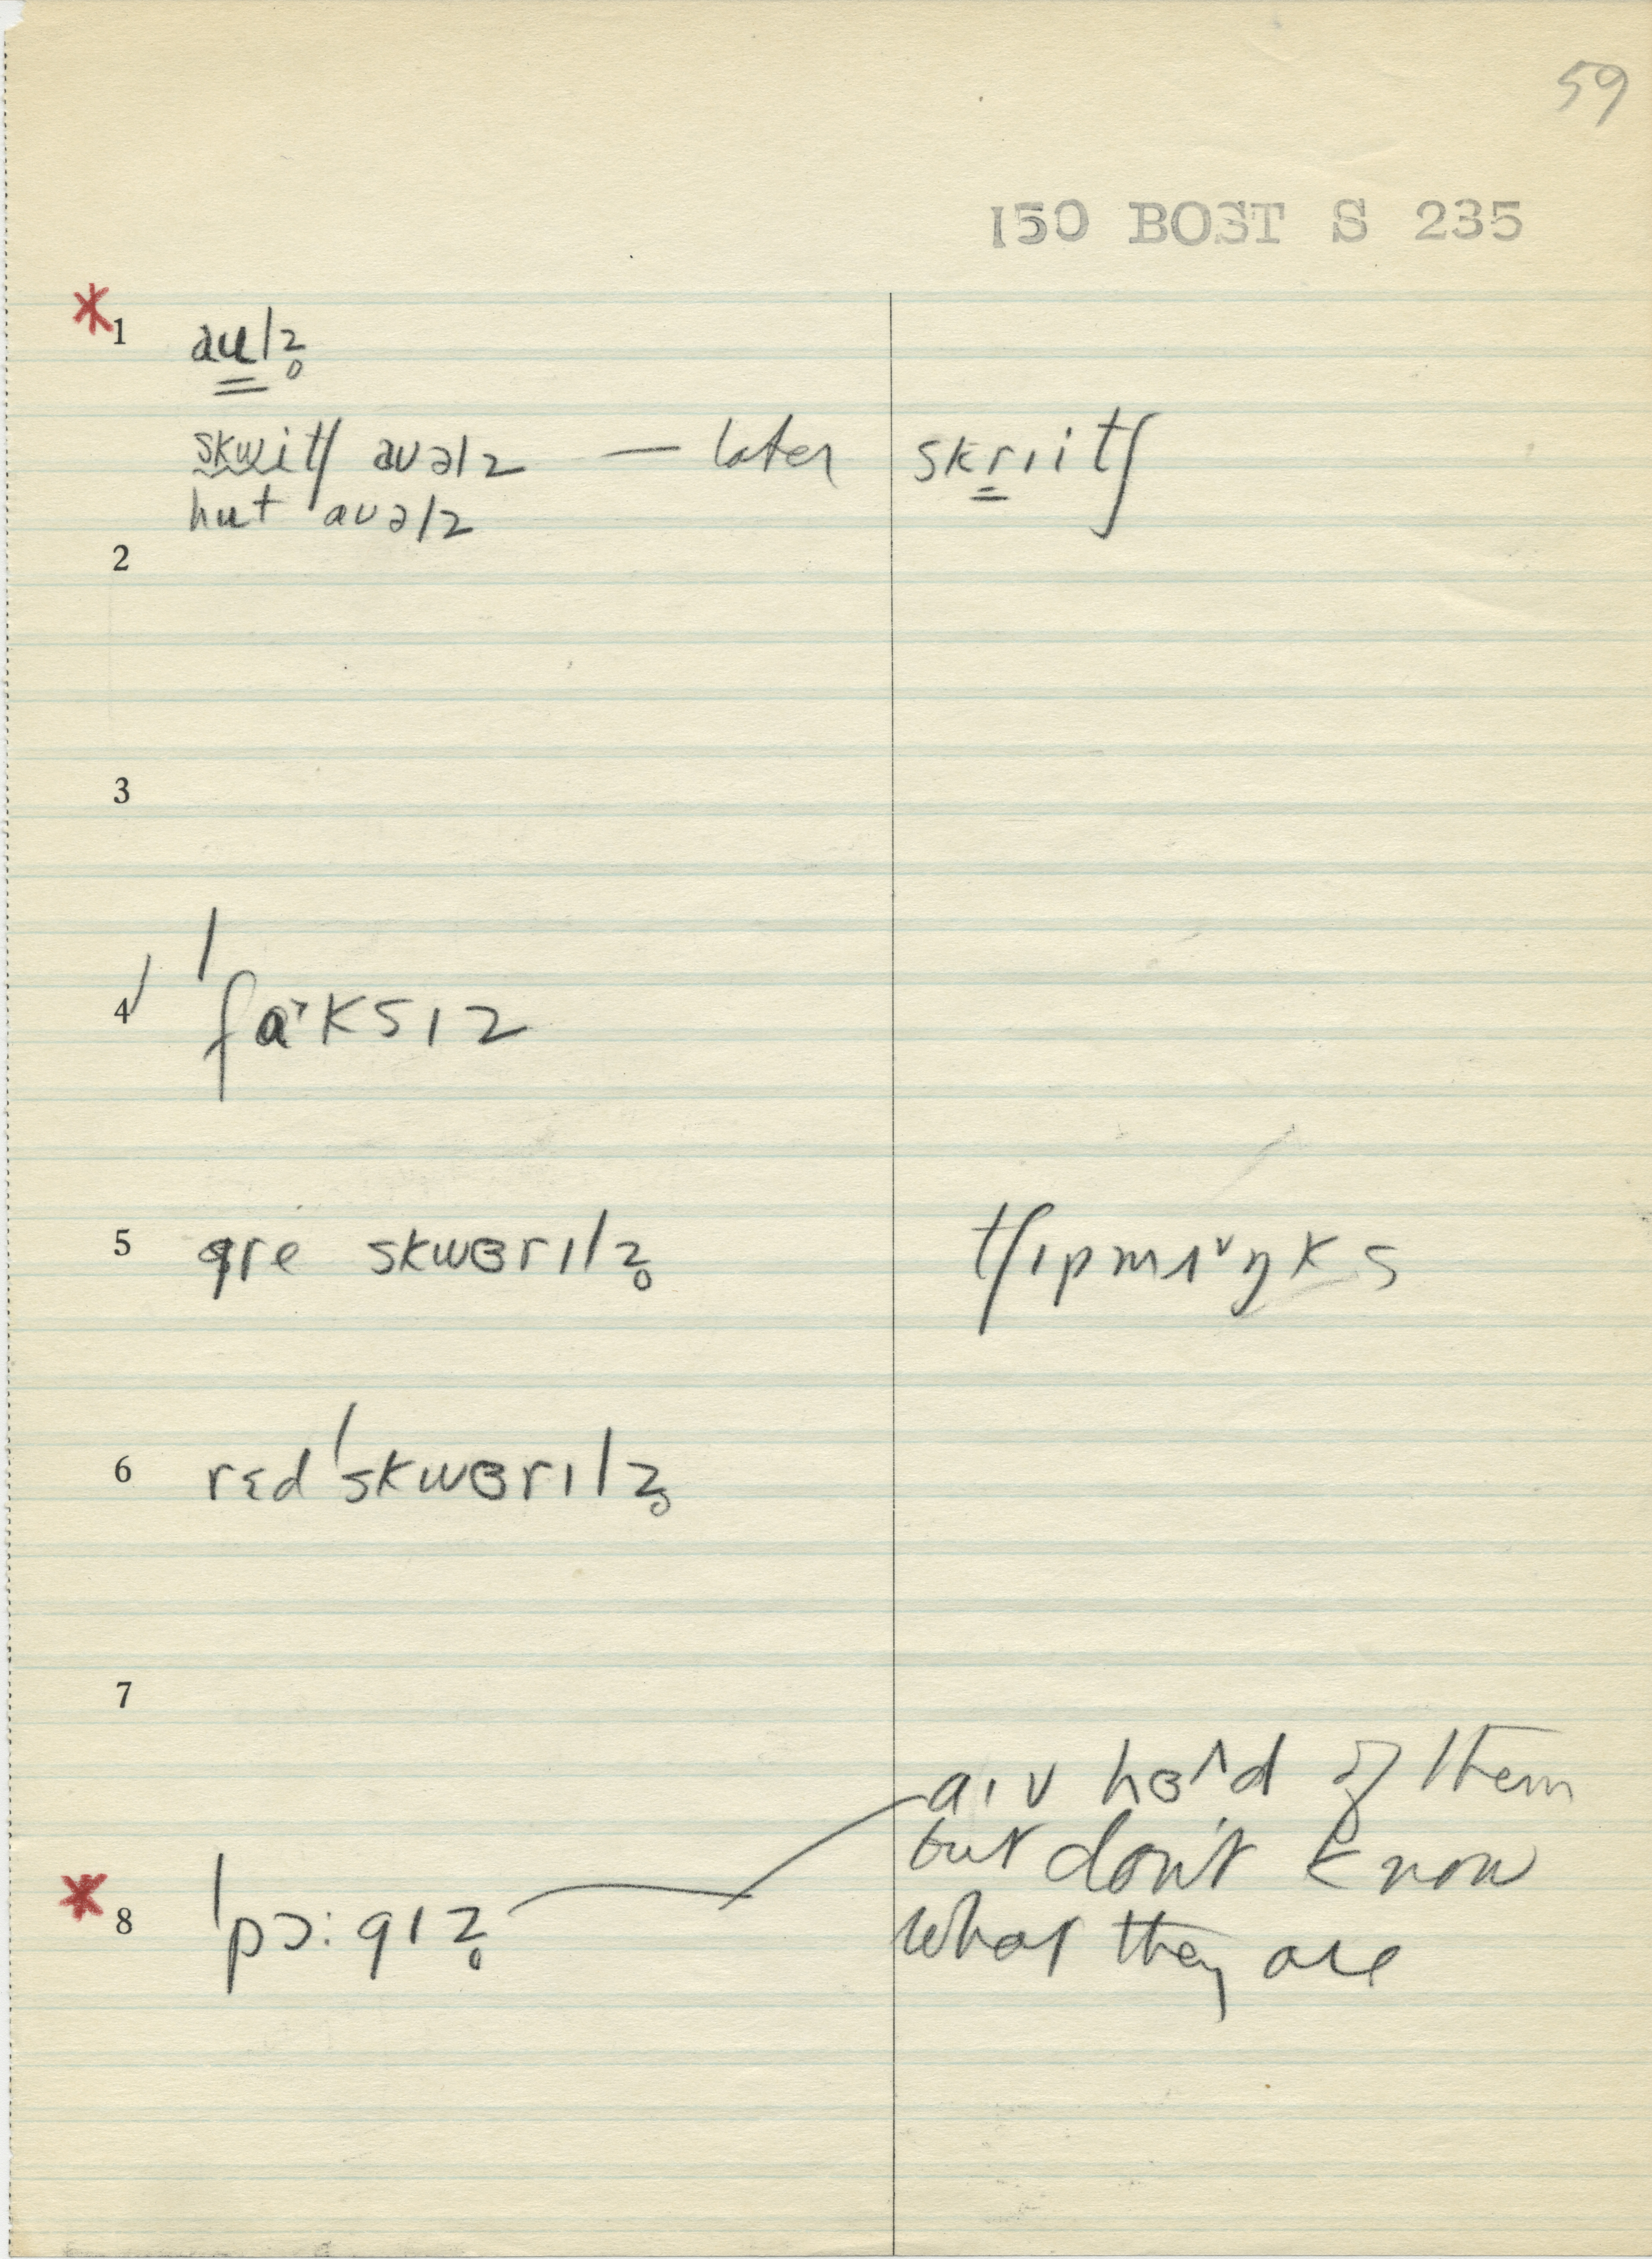 59
150 BOST S 235
*1 aʉlz̥
skwitʃ auəlz — later skriitʃ
hut auəlz
2
3
4 ˈfɑ˃ksɪz
5 gre skwɜrɪlz̥ tʃɪpmʌ˅ŋks
6 rɛdˈskwɜrɪlz̥
7
aɪv hɜ^d of them
but don't know
*8 ˈpɔ:gɪz̥ what they are